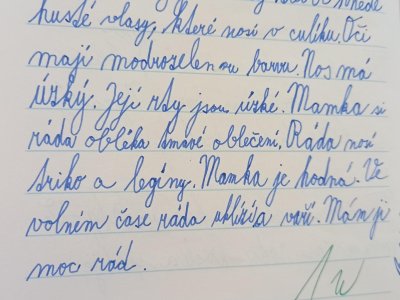 husté vlasy, které nosí v culíku. Oči
mají modrozelenou barvu. Nos má
úzký. Její rty jsou úzké. Mamka si
ráda obléka tmavé oblečení, Ráda nosí
triko a legíny. Mamka je hodná. Ve
volném čase ráda uklízí a vaří. Mám ji
moc rád.